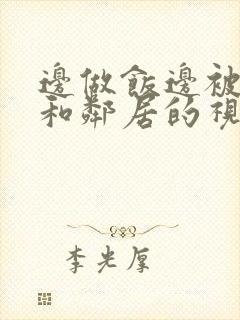 邊做飯邊被
和鄰居的視
李光厚